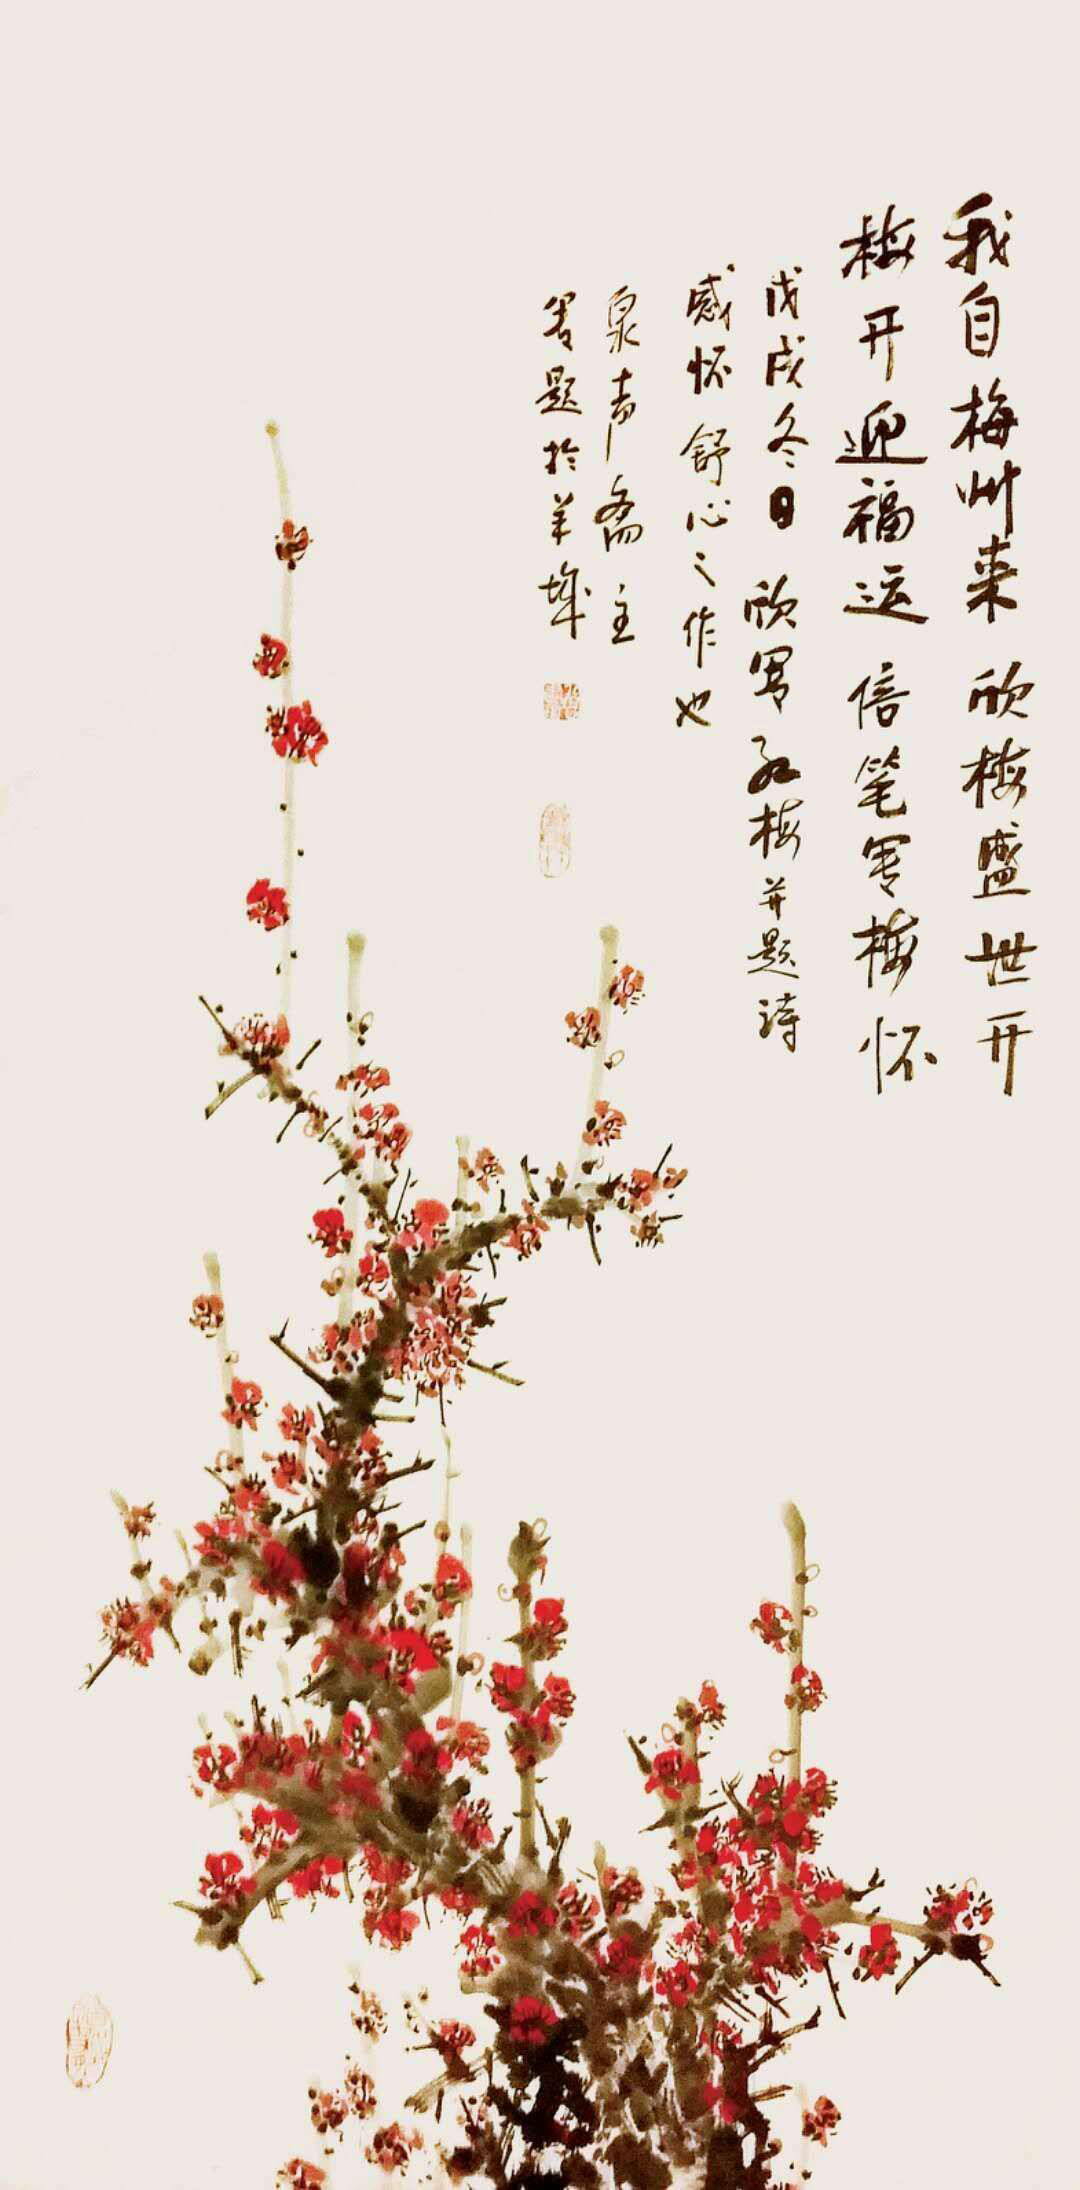 我自梅州来欣梅盛世开
梅开迎福运倍笔写梅怀
戊戌冬日欣写红梅并题诗
感怀舒心之作也
泉声斋主
写题于羊城